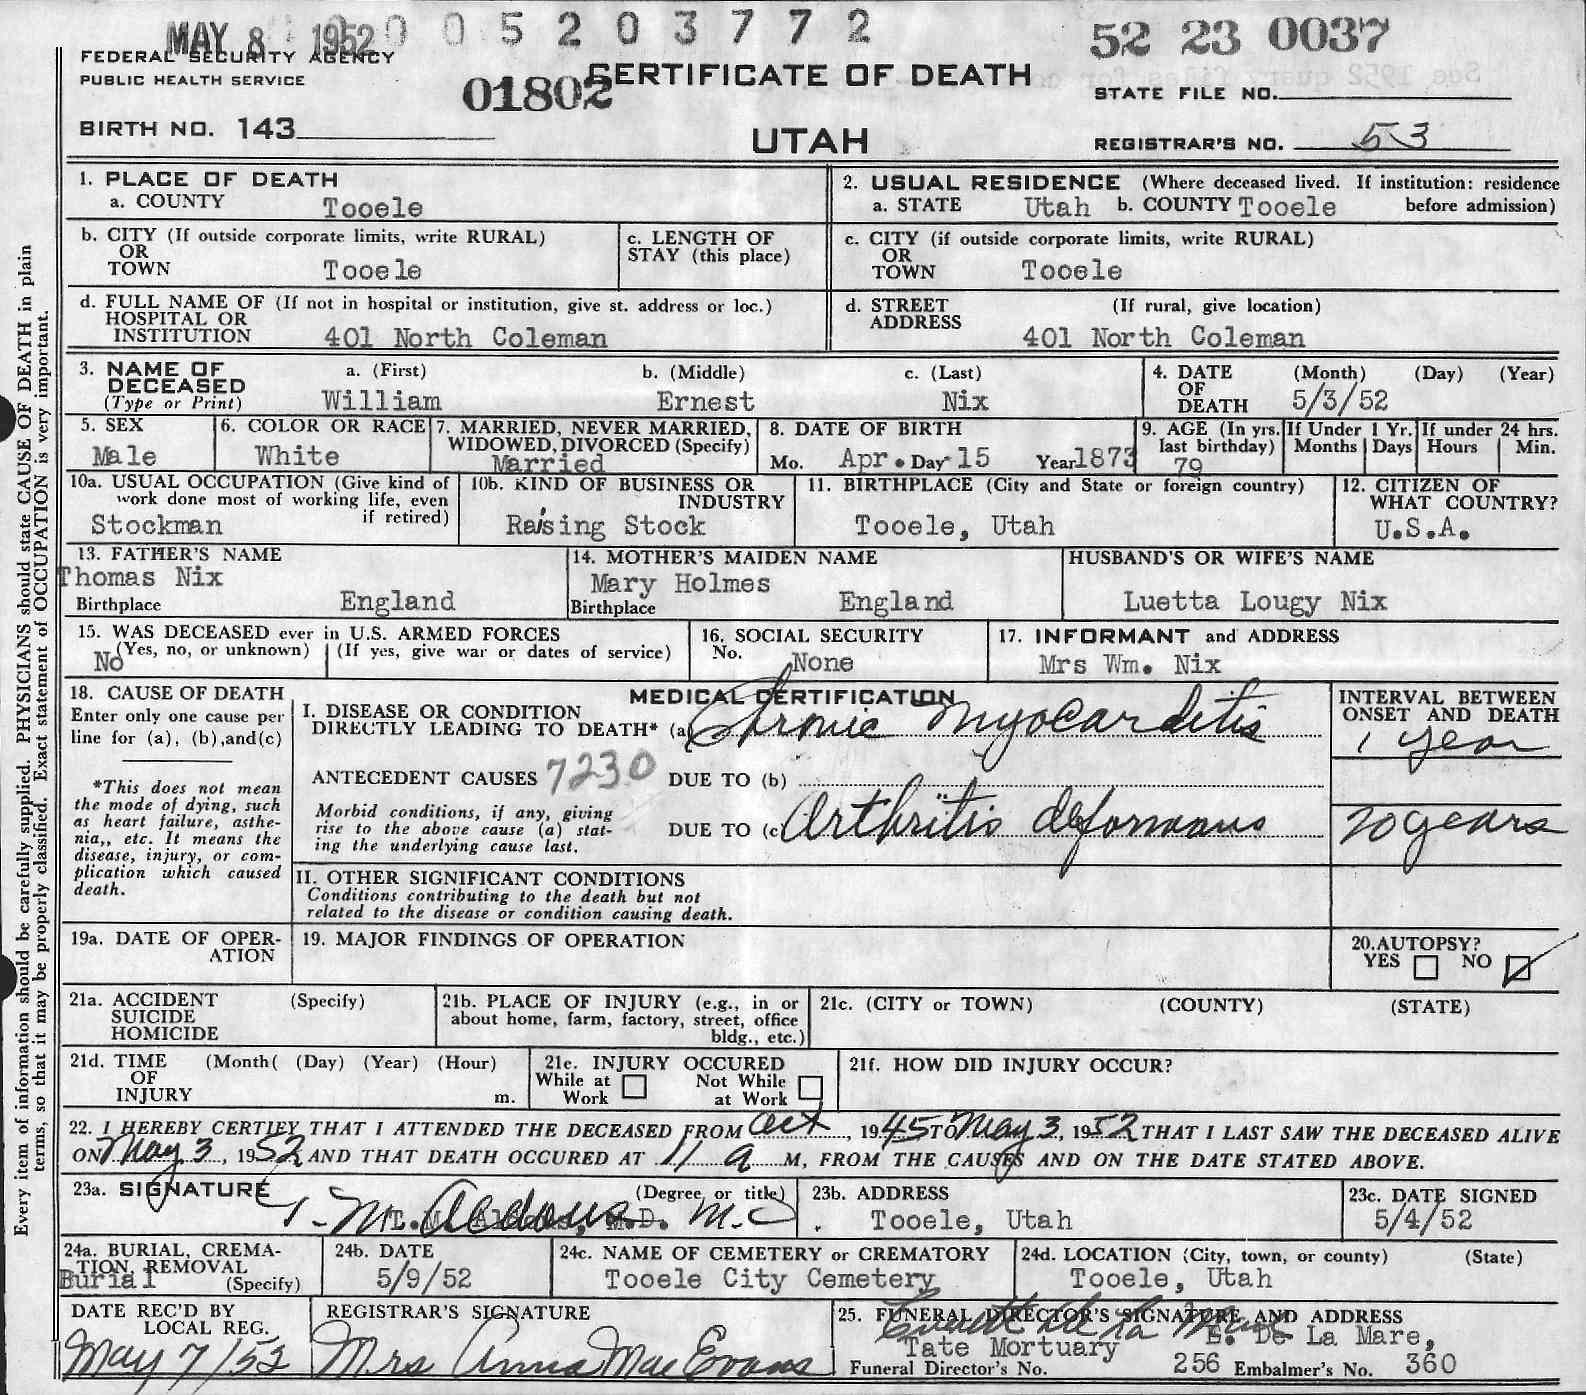 MAY 8 1952 0 0 5 2 0 3 7 7 2 52 23 0037
FEDERAL SECURITY AGENCY
PUBLIC HEALTH SERVICE
01802 CERTIFICATE OF DEATH
STATE FILE NO.
BIRTH NO. 143
UTAH
REGISTRAR'S NO. 53
1. PLACE OF DEATH
a. COUNTY Tooele
2. USUAL RESIDENCE (Where deceased lived. If institution: residence
a. STATE Utah b. COUNTY Tooele before admission)
b. CITY (If outside corporate limits, write RURAL)
OR
TOWN Tooele
c. LENGTH OF
STAY (this place)
c. CITY (if outside corporate limits, write RURAL)
OR
TOWN Tooele
d. FULL NAME OF (If not in hospital or institution, give st. address or loc.)
HOSPITAL OR
INSTITUTION 401 North Coleman
d. STREET (If rural, give location)
ADDRESS
401 North Coleman
3. NAME OF DECEASED
(Type or Print)
a. (First) b. (Middle) c. (Last)
William Ernest Nix
4. DATE OF DEATH (Month) (Day) (Year)
5/3/52
5. SEX
Male
6. COLOR OR RACE
White
7. MARRIED, NEVER MARRIED,
WIDOWED, DIVORCED (Specify)
Married
8. DATE OF BIRTH
Mo. Apr. Day 15 Year 1873
9. AGE (In yrs. last birthday)
79
If Under 1 Yr.
Months Days
If under 24 hrs.
Hours Min.
10a. USUAL OCCUPATION (Give kind of
work done most of working life, even
if retired)
Stockman
10b. KIND OF BUSINESS OR
INDUSTRY
Raising Stock
11. BIRTHPLACE (City and State or foreign country)
Tooele, Utah
12. CITIZEN OF
WHAT COUNTRY?
U.S.A.
13. FATHER'S NAME
Thomas Nix
Birthplace England
14. MOTHER'S MAIDEN NAME
Mary Holmes
Birthplace England
HUSBAND'S OR WIFE'S NAME
Luetta Lougy Nix
15. WAS DECEASED ever in U.S. ARMED FORCES
No (Yes, no, or unknown) (If yes, give war or dates of service)
16. SOCIAL SECURITY
No. None
17. INFORMANT and ADDRESS
Mrs Wm. Nix
18. CAUSE OF DEATH
Enter only one cause per
line for (a), (b),and(c)
*This does not mean
the mode of dying, such
as heart failure, asthe-
nia,, etc. It means the
disease, injury, or com-
plication which caused
death.
MEDICAL CERTIFICATION
I. DISEASE OR CONDITION
DIRECTLY LEADING TO DEATH* (a) Chronic Myocarditis
ANTECEDENT CAUSES 7230 DUE TO (b)
Morbid conditions, if any, giving
rise to the above cause (a) stat-
ing the underlying cause last.
DUE TO (c) Arthritis deformans
INTERVAL BETWEEN
ONSET AND DEATH
1 year
20 years
II. OTHER SIGNIFICANT CONDITIONS
Conditions contributing to the death but not
related to the disease or condition causing death.
19a. DATE OF OPER-
ATION
19. MAJOR FINDINGS OF OPERATION
20.AUTOPSY?
YES NO
21a. ACCIDENT (Specify)
SUICIDE
HOMICIDE
21b. PLACE OF INJURY (e.g., in or
about home, farm, factory, street, office
bldg., etc.)
21c. (CITY or TOWN) (COUNTY) (STATE)
21d. TIME (Month( (Day) (Year) (Hour)
OF
INJURY m.
21e. INJURY OCCURED
While at Work Not While at Work
21f. HOW DID INJURY OCCUR?
22. I HEREBY CERTIFY THAT I ATTENDED THE DECEASED FROM Oct, 1945 TO May 3, 1952 THAT I LAST SAW THE DECEASED ALIVE
ON May 3, 1952 AND THAT DEATH OCCURED AT 11 a M, FROM THE CAUSES AND ON THE DATE STATED ABOVE.
23a. SIGNATURE (Degree or title)
T. M. Aldous M.D.
23b. ADDRESS
Tooele, Utah
23c. DATE SIGNED
5/4/52
24a. BURIAL, CREMA-
TION, REMOVAL
Burial (Specify)
24b. DATE
5/9/52
24c. NAME OF CEMETERY or CREMATORY
Tooele City Cemetery
24d. LOCATION (City, town, or county) (State)
Tooele, Utah
DATE REC'D BY
LOCAL REG.
May 7/52
REGISTRAR'S SIGNATURE
Mrs Anna Mae Evans
25. FUNERAL DIRECTOR'S SIGNATURE AND ADDRESS
Tate Mortuary E. De La Mare,
Funeral Director's No. 256 Embalmer's No. 360
Every item of information should be carefully supplied. PHYSICIANS should state CAUSE OF DEATH in plain
terms, so that it may be properly classified. Exact statement of OCCUPATION is very important.